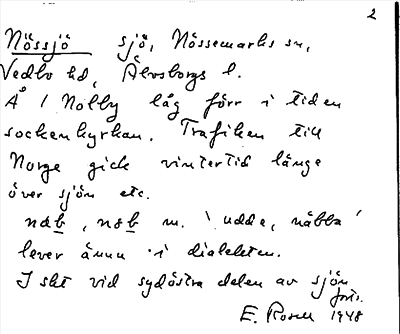 2
Nössjö sjö, Nössemarks sn,
Vedbo hd, Älvsborgs l.
På / Nolby låg förr i tiden
sockenkyrkan. Trafiken till
Norge gick vintertid länge
över sjön etc.
nab, nöb m. 'udde, näbba'
lever ännu i dialekten.
I sht vid sydöstra delen av sjön
forts.
E. Rosell 1948